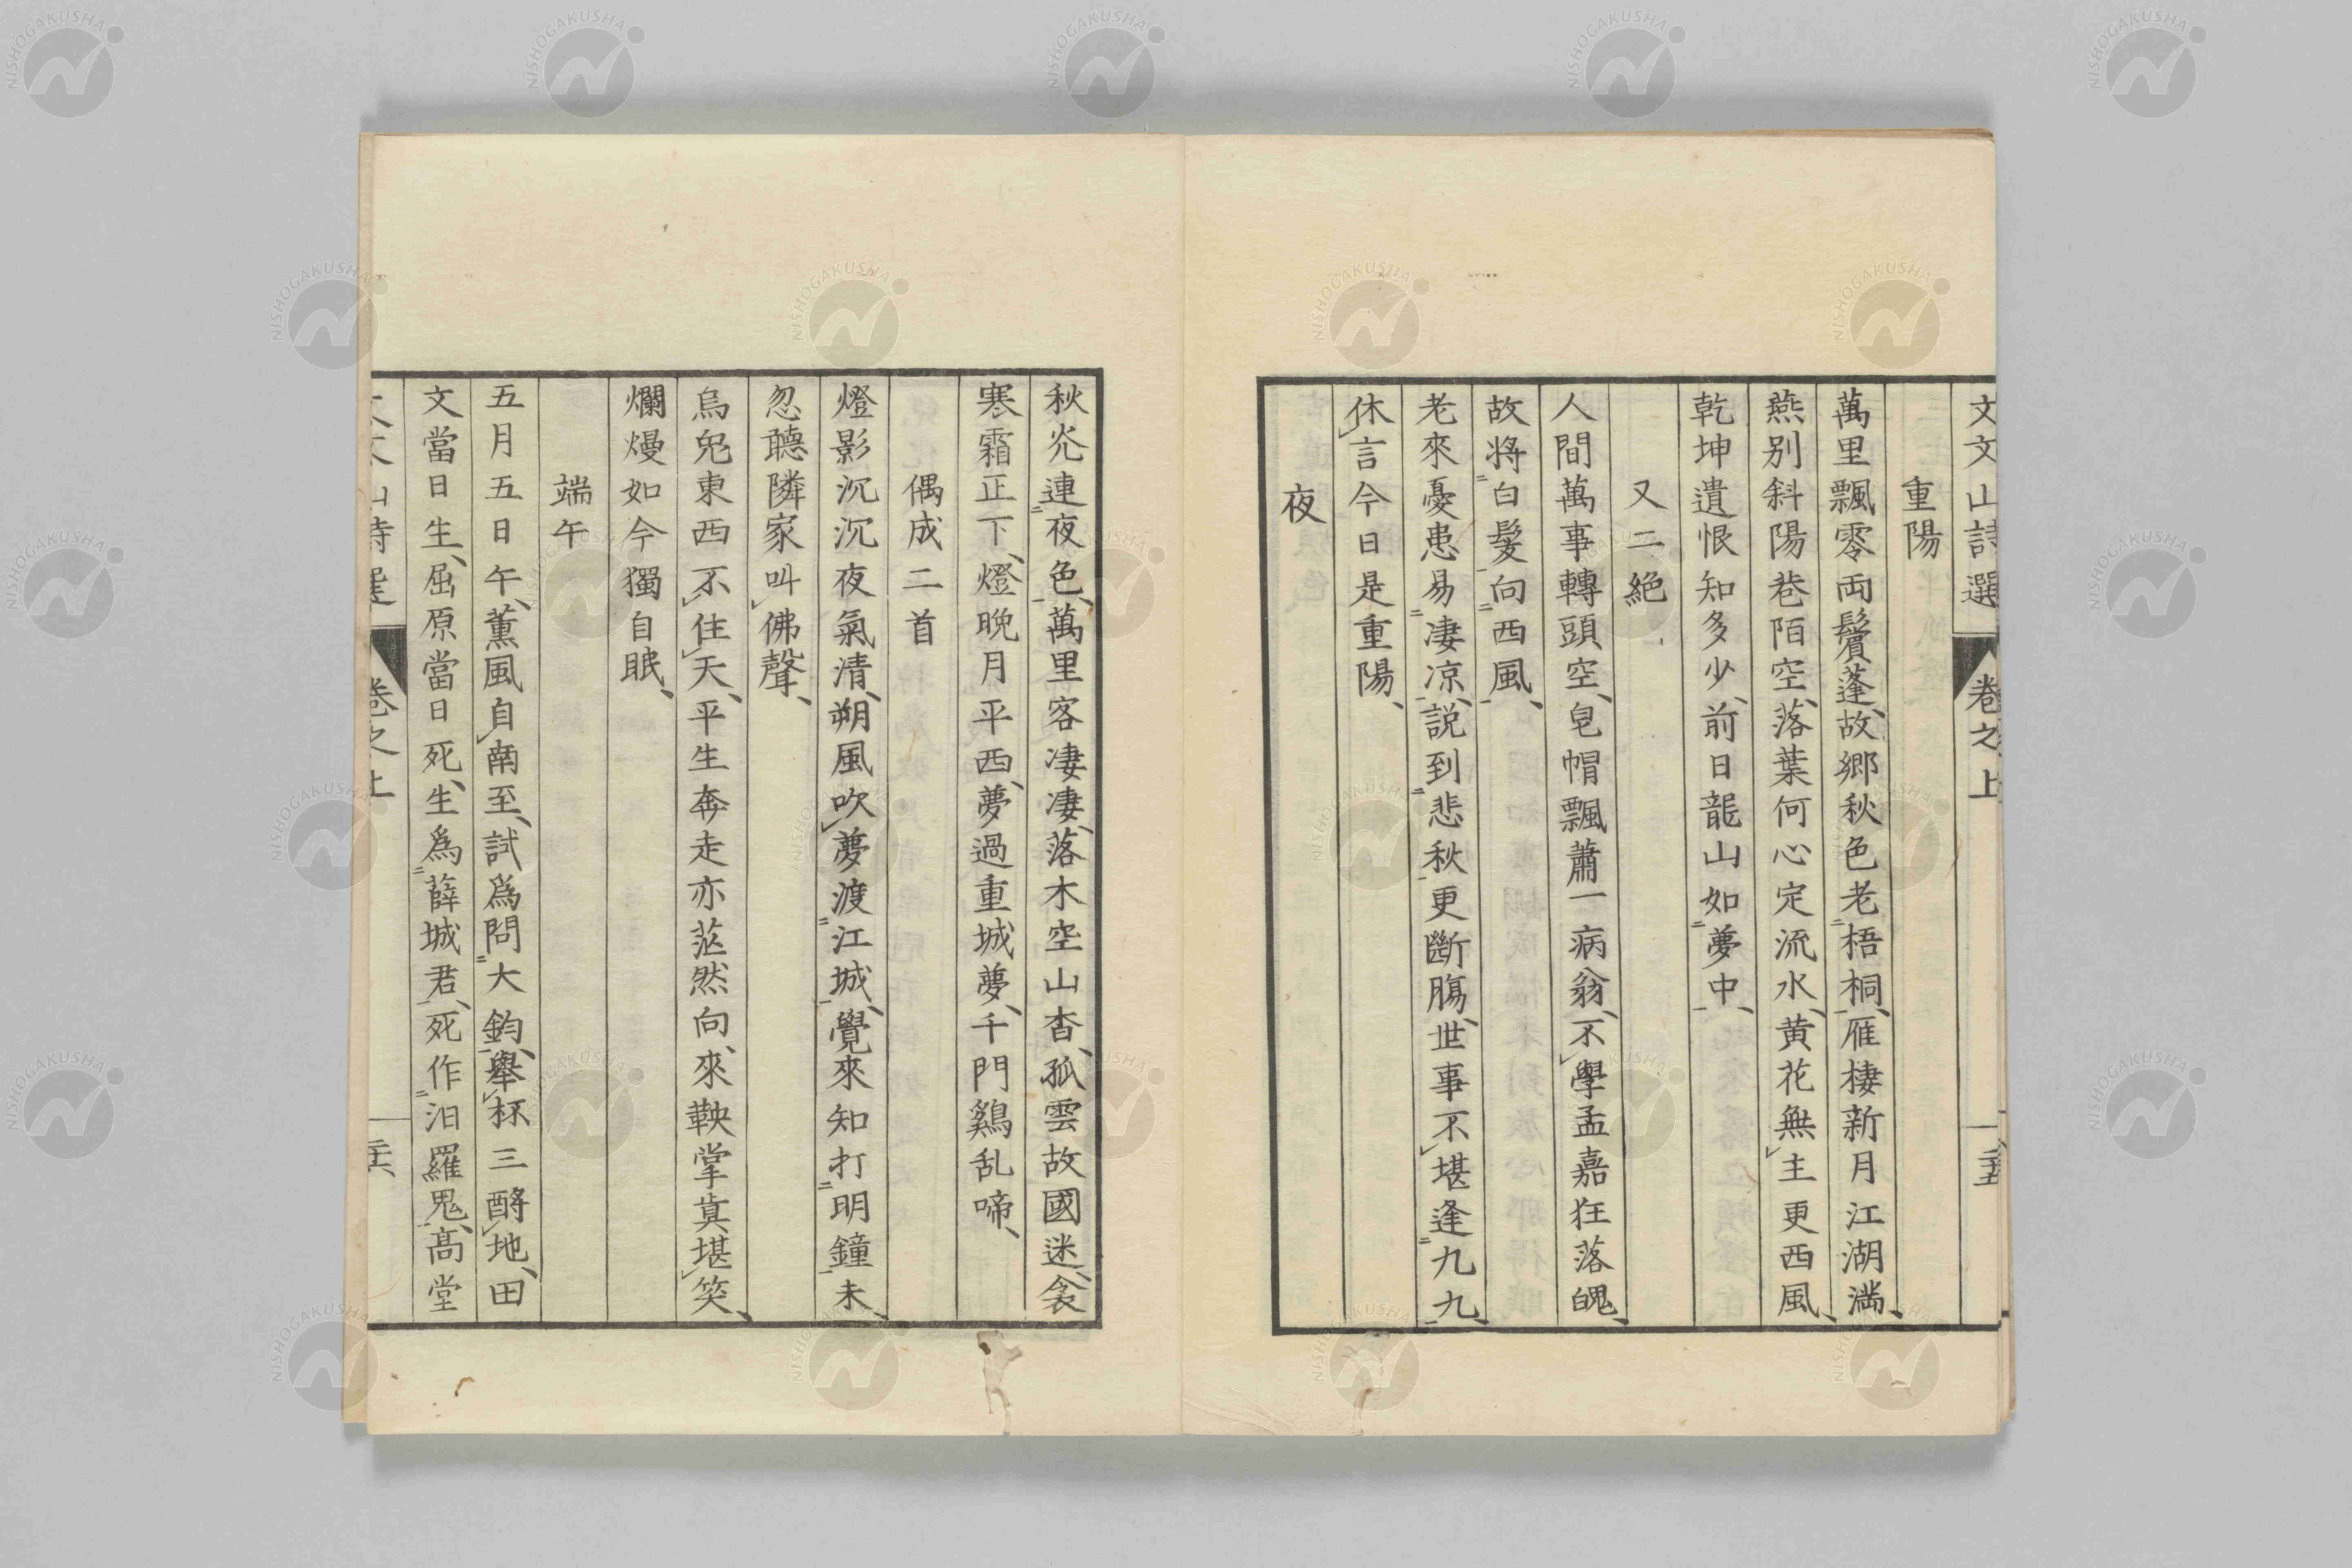 文文山詩選 卷之上 二十五
重陽
萬里飄零兩鬢蓬、故郷秋色老梧桐、雁棲新月江湖滿、
燕别斜陽巷陌空、落葉何心定流水、黄花無主更西風、
乾坤遺恨知多少、前日龍山如夢中、
又二絶
人間萬事轉頭空、皂帽飄蕭一病翁、不學孟嘉狂落魄、
故将白髮向西風、
老來憂患易凄凉、説到悲秋更斷腸、世事不堪逢九九、
休言今日是重陽、
夜
秋光連夜色、萬里客凄凄、落木空山杳、孤雲故國迷、衾
寒霜正下、燈晩月平西、夢過重城夢、千門鷄乱啼、
偶成二首
燈影沉沉夜氣清、朔風吹夢渡江城、覺來知打明鐘未、
忽聽隣家叫佛聲、
烏兔東西不住天、平生奔走亦茫然、向來鞅掌真堪笑、
爛熳如今獨自眠、
端午
五月五日午、薫風自南至、試爲問大鈞、舉杯三酹地、田
文當日生、屈原當日死、生爲薛城君、死作汨羅鬼、髙堂
文文山詩選 卷之上 二十六
NISHOGAKUSHA